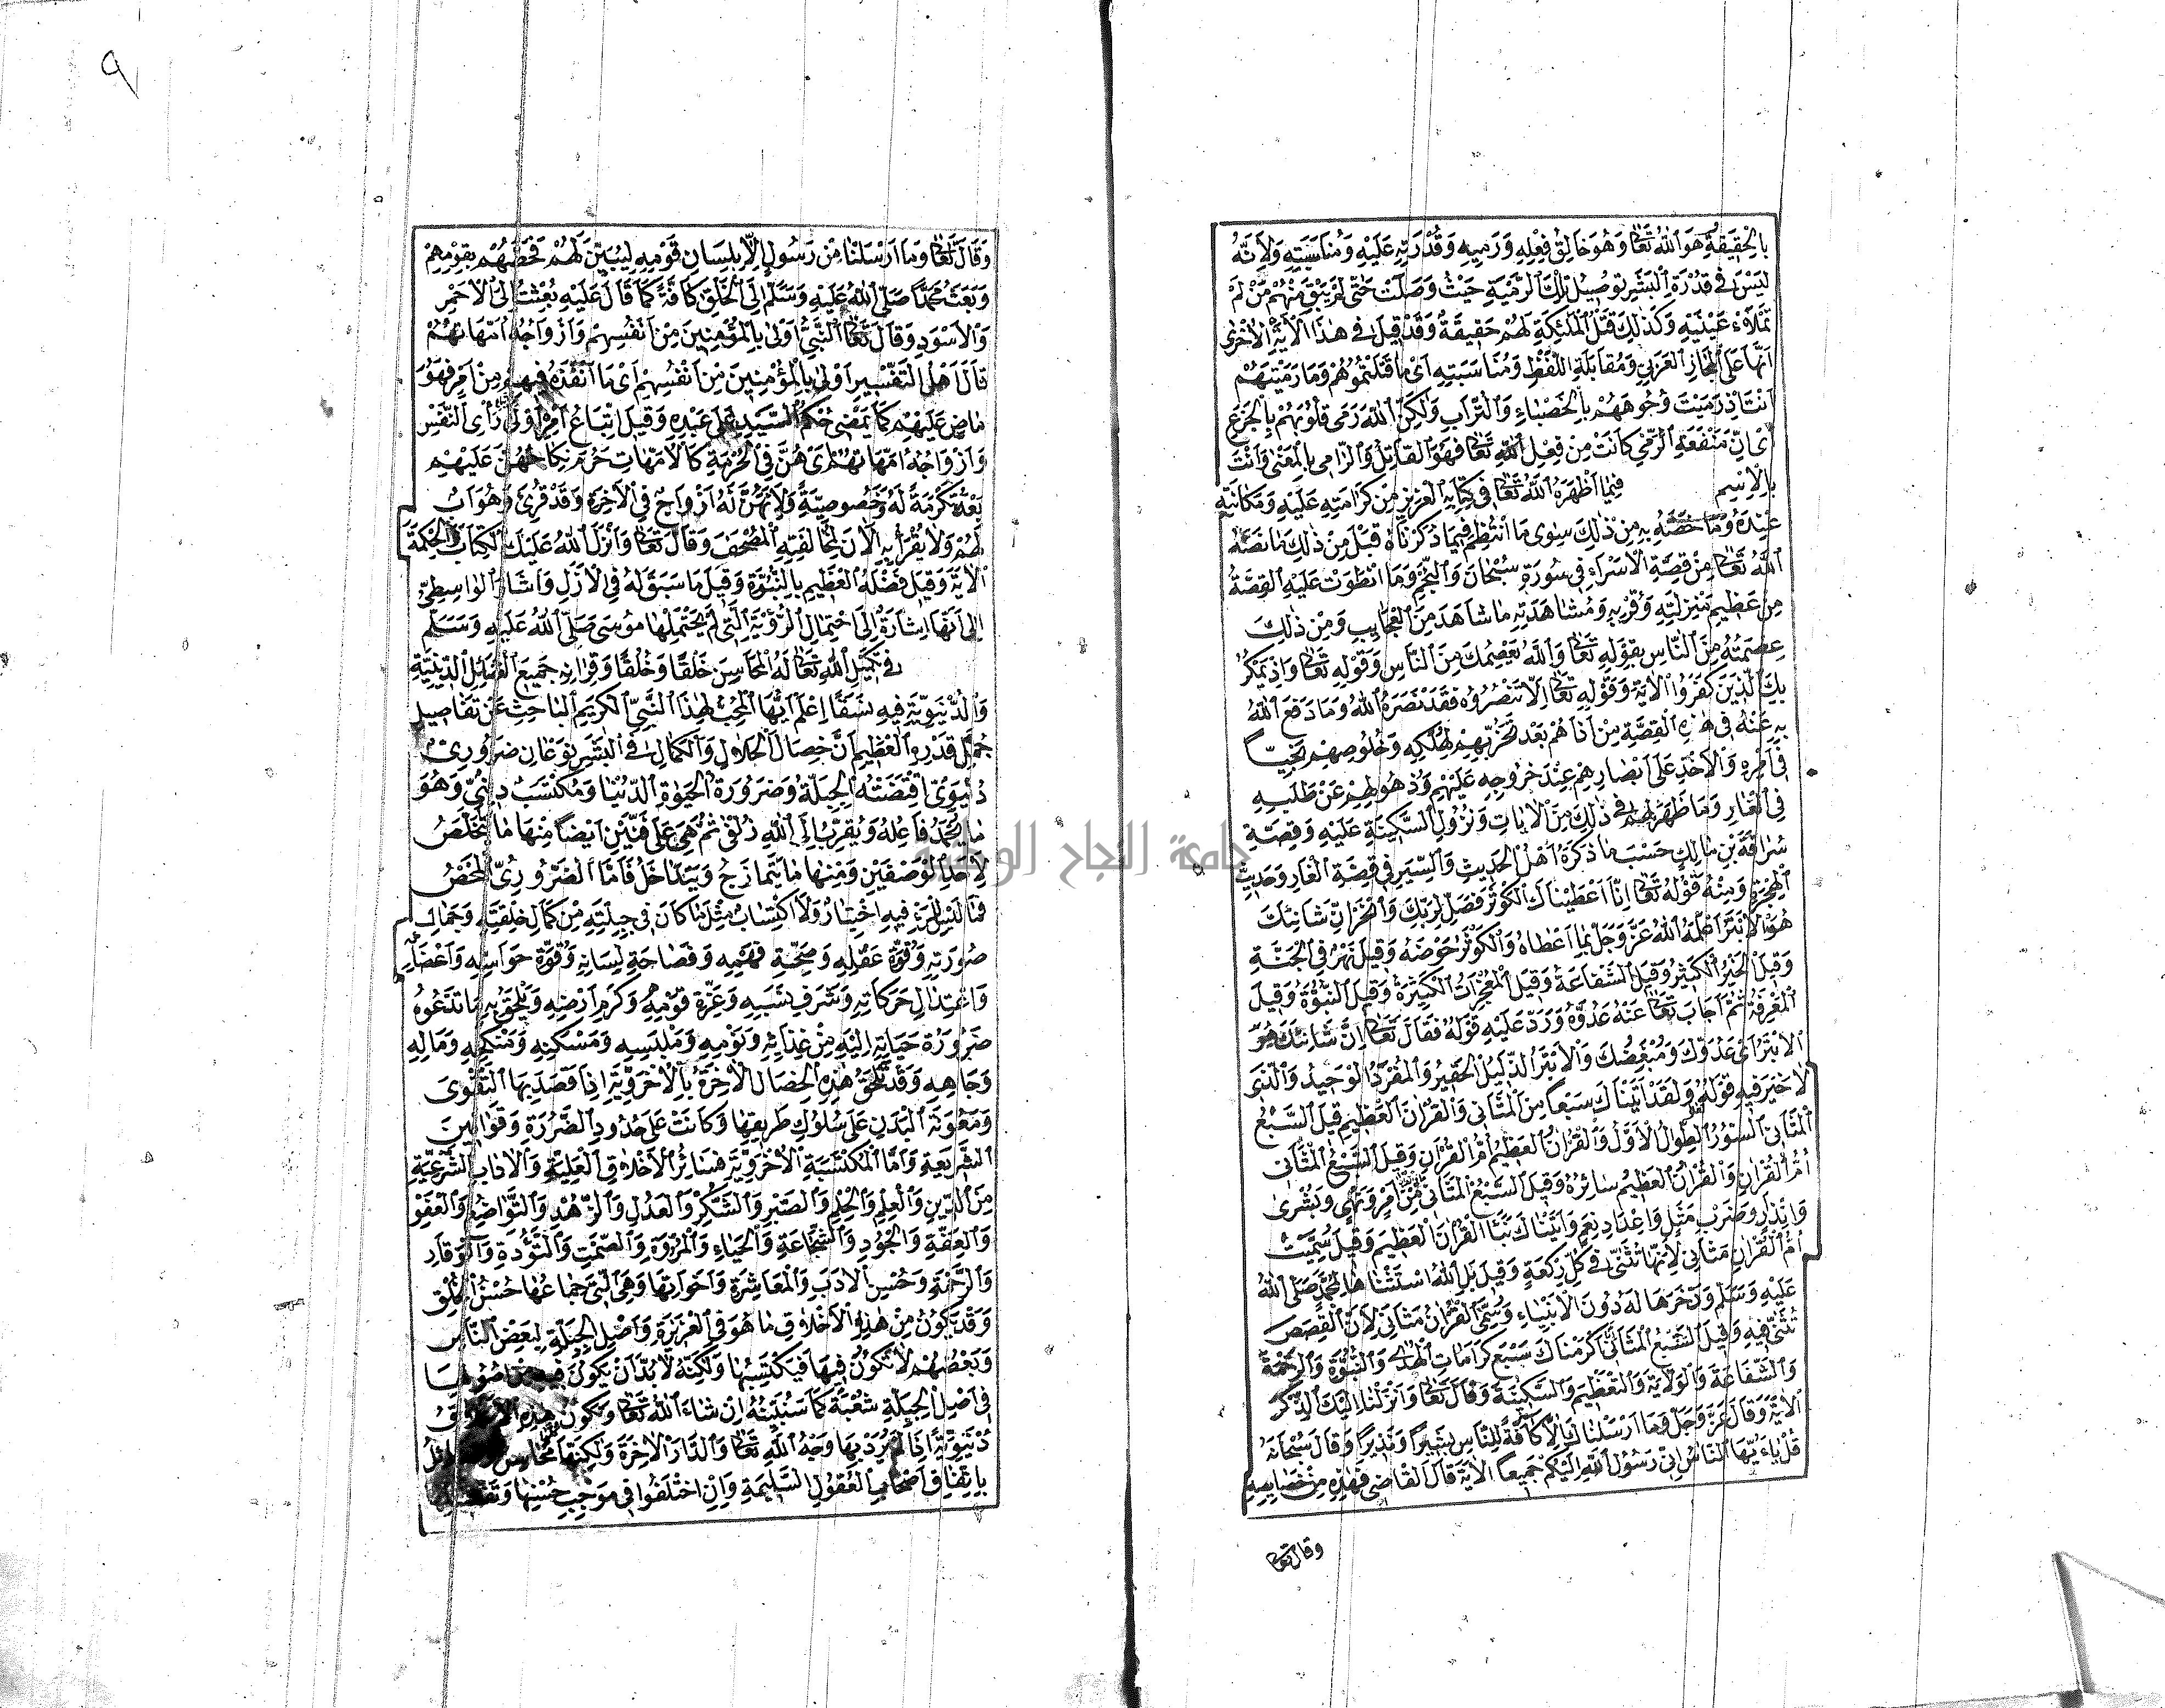 بِالْحَقِيقَةِ هُوَ اللهُ تَعَالَى وَهُوَ خَالِقُ فِعْلِهِ وَرَمْيِهِ وَقُدْرَتِهِ عَلَيْهِ وَمُنَاسَبَتِهِ وَلِاَنَّهُ
لَيْسَ فِي قُدْرَةِ الْبَشَرِ تَوْصِيلُ تِلْكَ الرَّمْيَةِ حَيْثُ وَصَلَتْ حَتَّى لَمْ يَبْقَ مِنْهُمْ مَنْ لَمْ
تَمْلَاْ عَيْنَيْهِ وَكَذَلِكَ قَتْلُ الْمَلٰئِكَةِ لَهُمْ حَقِيقَةً وَقَدْ قِيلَ فِي هٰذَا الْاٰيَةِ الْاُخْرٰى
اَنَّهَا عَلَى الْمَجَازِ الْعَرَبِي وَمُقَابَلَةِ اللَّفْظِ وَمُنَاسَبَتِهِ اَىْ مَا قَتَلْتُمُوهُمْ وَمَا رَمَيْتَهُمْ
اَنْتَ اِذْ رَمَيْتَ وُجُوهَهُمْ بِالْحَصْبَاءِ وَالتُّرَابِ وَلٰكِنَّ اللهَ رَمَى قُلُوبَهُمْ بِالْجَزَعِ
اَىْ اِنَّ مَنْفَعَةَ الرَّمْيِ كَانَتْ مِنْ فِعْلِ اللهِ تَعَالَى فَهُوَ الْقَاتِلُ وَالرَّامِى بِالْمَعْنٰى وَاَنْتَ
بِالْاِسْمِ فِيمَا اَظْهَرَهُ اللهُ تَعَالَى فِي كِتَابِهِ الْعَزِيزِ مِنْ كَرَامَتِهِ عَلَيْهِ وَمَكَانَتِهِ
عِنْدَهُ وَمَا خَصَّهُ بِهِ مِنْ ذٰلِكَ سِوٰى مَا انْتَظَمَ فِيمَا ذَكَرْنَاهُ قَبْلُ مِنْ ذٰلِكَ مَا نَصَّهُ
اللهُ تَعَالَى مِنْ قِصَّةِ الْاِسْرَاءِ فِي سُورَةِ سُبْحَانَ وَالنَّجْمِ وَمَا انْطَوَتْ عَلَيْهِ الْقِصَّةُ
مِنْ عَظِيمِ مَنْزِلَتِهِ وَقُرْبِهِ وَمُشَاهَدَتِهِ مَا شَاهَدَ مِنَ الْعَجَايِبِ وَمِنْ ذٰلِكَ
عِصْمَتُهُ مِنَ النَّاسِ بِقَوْلِهِ تَعَالَى وَاللهُ يَعْصِمُكَ مِنَ النَّاسِ وَقَوْلِهِ تَعَالَى وَاِذْ يَمْكُرُ
بِكَ الَّذِينَ كَفَرُوا الْاٰيَةَ وَقَوْلِهِ تَعَالَى اِلَّا تَنْصُرُوهُ فَقَدْ نَصَرَهُ اللهُ وَمَا دَفَعَ اللهُ
بِهِ عَنْهُ فِي هٰذِهِ الْقِصَّةِ مِنْ اَذَاهُمْ بَعْدَ تَحَزُّبِهِمْ لِهُلْكِهِ وَخُلُوصِهِمْ نَجِيًّا
فِي اَمْرِهِ وَالْاَخْذِ عَلَى اَبْصَارِهِمْ عِنْدَ خُرُوجِهِ عَلَيْهِمْ وَذُهُولِهِمْ عَنْ طَلَبِهِ
فِي الْغَارِ وَمَا ظَهَرَ لَهُمْ فِي ذٰلِكَ مِنَ الْاٰيَاتِ وَنُزُولِ السَّكِينَةِ عَلَيْهِ وَقِصَّةِ
سُرَاقَةَ بْنِ مَالِكٍ حَسْبَ مَا ذَكَرَهُ اَهْلُ الْحَدِيثِ وَالسِّيَرِ فِي قِصَّةِ الْغَارِ وَحَدِيثِ
الْهِجْرَةِ وَمِنْهُ قَوْلُهُ تَعَالَى اِنَّا اَعْطَيْنَاكَ الْكَوْثَرَ فَصَلِّ لِرَبِّكَ وَانْحَرْ اِنَّ شَانِئَكَ
هُوَ الْاَبْتَرُ اَعْلَمَهُ اللهُ عَزَّ وَجَلَّ بِمَا اَعْطَاهُ وَالْكَوْثَرُ حَوْضُهُ وَقِيلَ نَهْرٌ فِي الْجَنَّةِ
وَقِيلَ الْخَيْرُ الْكَثِيرُ وَقِيلَ الشَّفَاعَةُ وَقِيلَ الْمُعْجِزَاتُ الْكَثِيرَةُ وَقِيلَ النُّبُوَّةُ وَقِيلَ
الْمَعْرِفَةُ ثُمَّ اَجَابَ تَعَالَى عَنْهُ عَدُوَّهُ وَرَدَّ عَلَيْهِ قَوْلَهُ فَقَالَ تَعَالَى اِنَّ شَانِئَكَ هُوَ
الْاَبْتَرُ اَىْ عَدُوَّكَ وَمُبْغِضَكَ وَالْاَبْتَرُ الذَّلِيلُ الْحَقِيرُ وَالْمُفْرَدُ الْوَحِيدُ وَالَّذِى
لَا خَيْرَ فِيهِ قَوْلُهُ وَلَقَدْ اٰتَيْنَاكَ سَبْعًا مِنَ الْمَثَانِى وَالْقُرْاٰنَ الْعَظِيمَ قِيلَ السَّبْعُ
الْمَثَانِى السُّوَرُ الطِّوَلُ الْاُوَلُ وَالْقُرْاٰنُ الْعَظِيمُ اُمُّ الْقُرْاٰنِ وَقِيلَ السَّبْعُ الْمَثَانِى
اُمُّ الْقُرْاٰنِ وَالْقُرْاٰنُ الْعَظِيمُ سَائِرُهُ وَقِيلَ السَّبْعُ الْمَثَانِى مِنْ اَمْرٍ وَنَهْىٍ وَبُشْرٰى
وَاِنْذَارٍ وَضَرْبِ مَثَلٍ وَاِعْدَادِ نِعَمٍ وَاٰتَيْنَاكَ نَبَأَ الْقُرْاٰنِ الْعَظِيمِ وَقِيلَ سُمِّيَتْ
اُمُّ الْقُرْاٰنِ مَثَانِى لِاَنَّهَا تُثَنّٰى فِي كُلِّ رَكْعَةٍ وَقِيلَ بَلِ اللهُ اسْتَثْنَاهَا لِمُحَمَّدٍ صَلَّى اللهُ
عَلَيْهِ وَسَلَّمَ وَذَخَرَهَا لَهُ دُونَ الْاَنْبِيَاءِ وَسُمِّىَ الْقُرْاٰنُ مَثَانِىَ لِاَنَّ الْقِصَصَ
تُثَنّٰى فِيهِ وَقِيلَ السَّبْعُ الْمَثَانِى اَكْرَمْنَاكَ بِسَبْعِ كَرَامَاتٍ الْهُدٰى وَالنُّبُوَّةِ وَالرَّحْمَةِ
وَالشَّفَاعَةِ وَالْوَلَايَةِ وَالتَّعْظِيمِ وَالسَّكِينَةِ وَقَالَ تَعَالَى وَاَنْزَلْنَا اِلَيْكَ الذِّكْرَ
الْاٰيَةَ وَقَالَ عَزَّ وَجَلَّ وَمَا اَرْسَلْنَاكَ اِلَّا كَافَّةً لِلنَّاسِ بَشِيرًا وَنَذِيرًا وَقَالَ سُبْحَانَهُ
قُلْ يَاءَيُّهَا النَّاسُ اِنِّى رَسُولُ اللهِ اِلَيْكُمْ جَمِيعًا الْاٰيَةَ قَالَ الْقَاضِى فَهٰذِهِ مِنْ خَصَايِصِهِ
وقال تعالى
٩
وَقَالَ تَعَالَى وَمَا اَرْسَلْنَا مِنْ رَسُولٍ اِلَّا بِلِسَانِ قَوْمِهِ لِيُبَيِّنَ لَهُمْ فَخَصَّهُمْ بِقَوْمِهِمْ
وَبَعَثَ مُحَمَّدًا صَلَّى اللهُ عَلَيْهِ وَسَلَّمَ اِلَى الْخَلْقِ كَافَّةً كَمَا قَالَ عَلَيْهِ بُعِثْتُ اِلَى الْاَحْمَرِ
وَالْاَسْوَدِ وَقَالَ تَعَالَى النَّبِىُّ اَوْلٰى بِالْمُؤْمِنِينَ مِنْ اَنْفُسِهِمْ وَاَزْوَاجُهُ اُمَّهَاتُهُمْ
قَالَ اَهْلُ التَّفْسِيرِ اَوْلٰى بِالْمُؤْمِنِينَ مِنْ اَنْفُسِهِمْ اَىْ مَا اَنْفَذَهُ فِيهِمْ مِنْ اَمْرٍ فَهُوَ
مَاضٍ عَلَيْهِمْ كَمَا يَمْضِى حُكْمُ السَّيِّدِ عَلَى عَبْدِهِ وَقِيلَ اتِّبَاعُ اَمْرِهِ اَوْلٰى رَاْىِ النَّفْسِ
وَاَزْوَاجُهُ اُمَّهَاتُهُمْ اَىْ هُنَّ فِي الْحُرْمَةِ كَالْاُمَّهَاتِ حَرُمَ نِكَاحُهُنَّ عَلَيْهِمْ
بَعْدَهُ تَكْرِمَةً لَهُ وَخُصُوصِيَّةً وَلِاَنَّهُنَّ لَهُ اَزْوَاجٌ فِي الْاٰخِرَةِ وَقَدْ قُرِئَ وَهُوَ اَبٌ
لَهُمْ وَلَا يُقْرَأُ بِهِ الْاٰنَ لِمُخَالَفَتِهِ الْمُصْحَفَ وَقَالَ تَعَالَى وَاَنْزَلَ اللهُ عَلَيْكَ الْكِتَابَ وَالْحِكْمَةَ
الْاٰيَةَ وَقِيلَ فَضْلُهُ الْعَظِيمُ بِالنُّبُوَّةِ وَقِيلَ مَا سَبَقَ لَهُ فِي الْاَزَلِ وَاَشَارَ الْوَاسِطِىُّ
اِلٰى اَنَّهَا اِشَارَةٌ اِلَى احْتِمَالِ الرُّؤْيَةِ الَّتِى لَمْ يَحْتَمِلْهَا مُوسَى صَلَّى اللهُ عَلَيْهِ وَسَلَّمَ
فِي تَكْمِيلِ اللهِ تَعَالَى لَهُ الْمَحَاسِنَ خَلْقًا وَخُلُقًا وَقِرَانِهِ جَمِيعَ الْفَضَائِلِ الدِّينِيَّةِ
وَالدُّنْيَوِيَّةِ فِيهِ نَسَقًا اِعْلَمْ اَيُّهَا الْمُحِبُّ لِهٰذَا النَّبِىِّ الْكَرِيمِ الْبَاحِثُ عَنْ تَفَاصِيلِ
جُمَلِ قَدْرِهِ الْعَظِيمِ اَنَّ خِصَالَ الْجَلَالِ وَالْكَمَالِ فِي الْبَشَرِ نَوْعَانِ ضَرُورِىٌّ
دُنْيَوِىٌّ اقْتَضَتْهُ الْجِبِلَّةُ وَضَرُورَةُ الْحَيٰوةِ الدُّنْيَا وَمُكْتَسَبٌ دِينِىٌّ وَهُوَ
مَا يُحْمَدُ فَاعِلُهُ وَيُقَرِّبُ اِلَى اللهِ زُلْفٰى ثُمَّ هِىَ عَلَى فَنَّيْنِ اَيْضًا مِنْهَا مَا يَتَخَلَّصُ
لِاَحَدِ الْوَصْفَيْنِ وَمِنْهَا مَا يَتَمَازَجُ وَيَتَدَاخَلُ فَاَمَّا الضَّرُورِىُّ الْمَحْضُ
فَمَا لَيْسَ لِلْمَرْءِ فِيهِ اخْتِيَارٌ وَلَا اكْتِسَابٌ مِثْلُ مَا كَانَ فِي جِبِلَّتِهِ مِنْ كَمَالِ خِلْقَتِهِ وَجَمَالِ
صُورَتِهِ وَقُوَّةِ عَقْلِهِ وَصِحَّةِ فَهْمِهِ وَفَصَاحَةِ لِسَانِهِ وَقُوَّةِ حَوَاسِّهِ وَاَعْضَائِهِ
وَاعْتِدَالِ حَرَكَاتِهِ وَشَرَفِ نَسَبِهِ وَعِزَّةِ قَوْمِهِ وَكَرَمِ اَرْضِهِ وَيَلْحَقُ بِهِ مَا تَدْعُوهُ
ضَرُورَةُ حَيَاتِهِ اِلَيْهِ مِنْ غِذَائِهِ وَنَوْمِهِ وَمَلْبَسِهِ وَمَسْكَنِهِ وَمَنْكَحِهِ وَمَالِهِ
وَجَاهِهِ وَقَدْ تَلْحَقُ هٰذِهِ الْخِصَالُ الْاٰخِرَةُ بِالْاُخْرَوِيَّةِ اِذَا قَصَدَ بِهَا التَّقْوٰى
وَمَعُونَةَ الْبَدَنِ عَلَى سُلُوكِ طَرِيقِهَا وَكَانَتْ عَلَى حُدُودِ الضَّرُورَةِ وَقَوَانِينِ
الشَّرِيعَةِ وَاَمَّا الْمُكْتَسَبَةُ الْاُخْرَوِيَّةُ فَسَائِرُ الْاَخْلَاقِ الْعَلِيَّةِ وَالْاٰدَابِ الشَّرْعِيَّةِ
مِنَ الدِّينِ وَالْعِلْمِ وَالْحِلْمِ وَالصَّبْرِ وَالشُّكْرِ وَالْعَدْلِ وَالزُّهْدِ وَالتَّوَاضُعِ وَالْعَفْوِ
وَالْعِفَّةِ وَالْجُودِ وَالشَّجَاعَةِ وَالْحَيَاءِ وَالْمُرُوَّةِ وَالصَّمْتِ وَالتُّؤَدَةِ وَالْوَقَارِ
وَالرَّحْمَةِ وَحُسْنِ الْاَدَبِ وَالْمُعَاشَرَةِ وَاَخَوَاتِهَا وَهِىَ الَّتِى جِمَاعُهَا حُسْنُ الْخُلُقِ
وَقَدْ يَكُونُ مِنْ هٰذِهِ الْاَخْلَاقِ مَا هُوَ فِي الْغَرِيزَةِ وَاَصْلِ الْجِبِلَّةِ لِبَعْضِ النَّاسِ
وَبَعْضُهُمْ لَا تَكُونُ فِيهَا فَيَكْتَسِبُهَا وَلٰكِنَّهُ لَا بُدَّ اَنْ يَكُونَ فِيهِ مِنْ اُصُولِهَا
فِي اَصْلِ الْجِبِلَّةِ شُعْبَةٌ كَمَا سَنُبَيِّنُهُ اِنْ شَاءَ اللهُ تَعَالَى وَتَكُونُ هٰذِهِ الْاَخْلَاقُ
دُنْيَوِيَّةً اِذَا لَمْ يُرَدْ بِهَا وَجْهُ اللهِ تَعَالَى وَالدَّارُ الْاٰخِرَةُ وَلٰكِنَّهَا مَحَاسِنُ
بِاتِّفَاقِ اَصْحَابِ الْعُقُولِ السَّلِيمَةِ وَاِنِ اخْتَلَفُوا فِي مُوجِبِ حُسْنِهَا
جامعة النجاح الوطنية